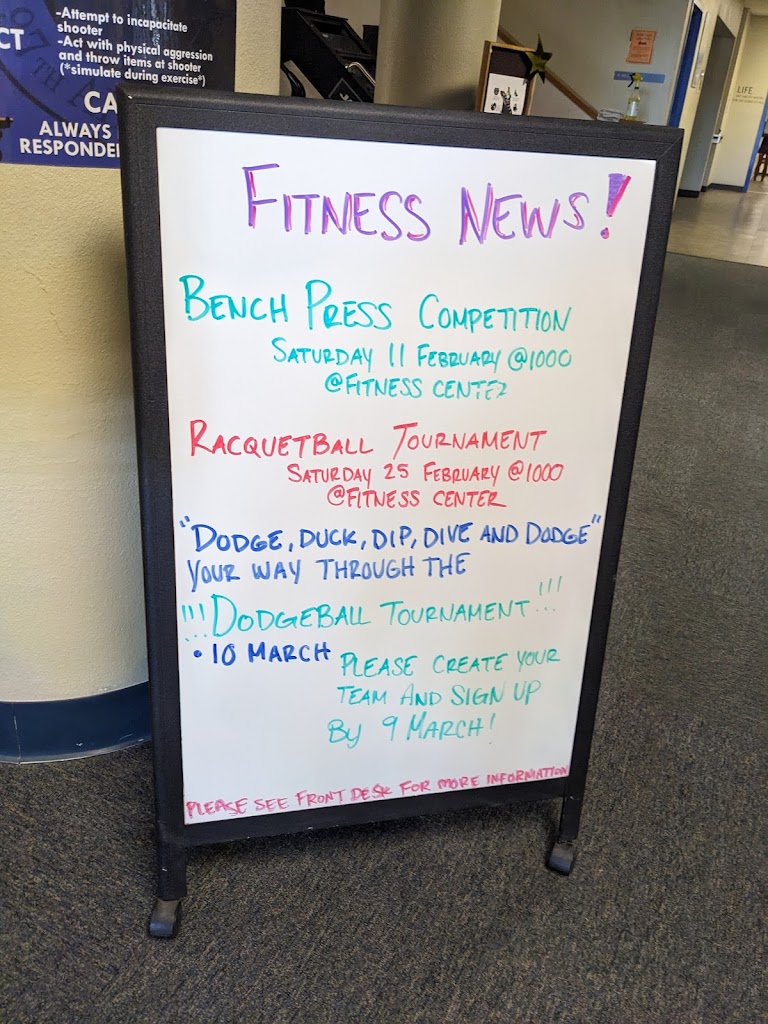 -Attempt to incapacitate
shooter
-Act with physical aggression
and throw items at shooter
(*simulate during exercise*)
CT
CA
ALWAYS
RESPONDE
LIFE
FITNESS NEWS!
BENCH PRESS COMPETITION
SATURDAY 11 FEBRUARY @1000
@FITNESS CENTER
RACQUETBALL TOURNAMENT
SATURDAY 25 FEBRUARY @1000
@FITNESS CENTER
"DODGE, DUCK, DIP, DIVE AND DODGE"
YOUR WAY THROUGH THE
!!!DODGEBALL TOURNAMENT!!!
• 10 MARCH
PLEASE CREATE YOUR
TEAM AND SIGN UP
BY 9 MARCH!
PLEASE SEE FRONT DESK FOR MORE INFORMATION